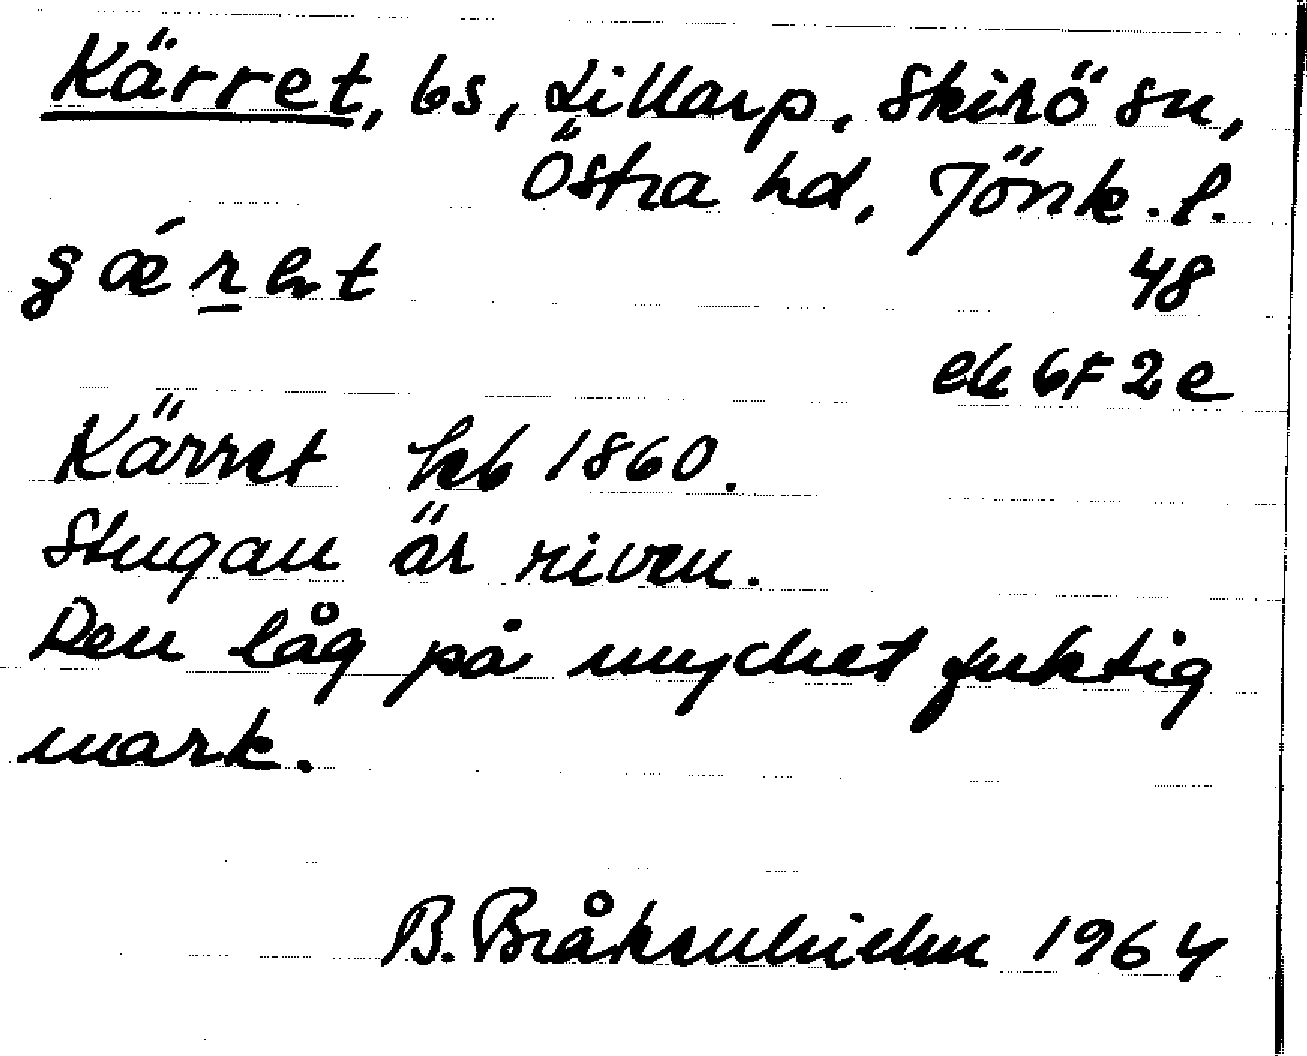 Kärret, bs, Lillarp, Skirö sn,
Östra hd, Jönk. l.
48
ek 6F2e
Kärret hfb 1860.
Stugan är riven.
Den låg på mycket fuktig
mark.
B. Bråkenhielm 1964